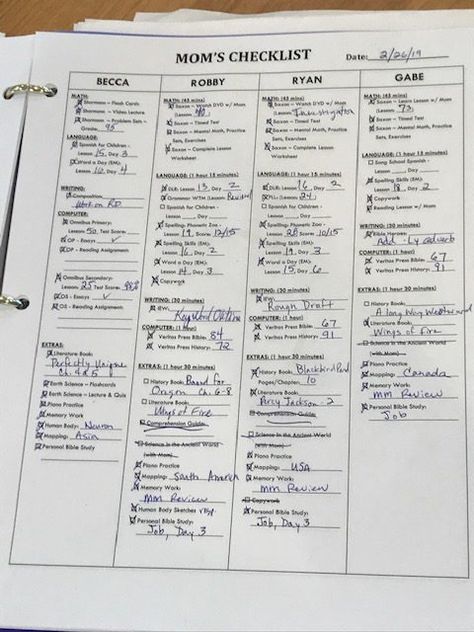 MOM'S CHECKLIST
Date: 2/26/19
BECCA
MATH:
Shormann - Flash Cards
Shormann - Video Lecture
Shormann - Problem Set -
Grade: 95
LANGUAGE:
Spanish for Children -
Lesson 15, Day 3
Word a Day (EM):
Lesson 10, Day 4
WRITING:
Composition
Work on RD
COMPUTER:
Omnibus Primary:
Lesson 50, Test Score:
OP - Essays ✓
OP - Reading Assignment:
Omnibus Secondary:
Lesson 25 Test Score:
OS - Essays
OS - Reading Assignment:
EXTRAS:
Literature Book:
Perfectly Unique
Ch. 4 & 5
Earth Science - Flashcards
Earth Science - Lecture & Quiz
Piano Practice
Memory Work
Human Body: Neuron
Mapping: Asia
Personal Bible Study
ROBBY
MATH: (45 mins)
Saxon - Watch DVD w/ Mom
Lesson
Saxon - Timed Test
Saxon - Mental Math, Practice
Set, Exercises
Saxon - Complete Lesson
Worksheet
LANGUAGE: (1 hour 15 minutes)
DLR: Lesson 13, Day 2
Grammar WTM (Lesson Review)
Spanish for Children -
Lesson ___, Day ___
Spelling: Phonetic Zoo -
Lesson 19, Score 12/15
Spelling Skills (EM):
Lesson 16, Day 2
Word a Day (EM):
Lesson 14, Day 3
Copywork
WRITING: (30 minutes)
IEW:
Keyword Outline
COMPUTER: (1 hour)
Veritas Press Bible: 84
Veritas Press History: 72
EXTRAS: (1 hour 30 minutes)
History Book: Bound for
Oregon Ch. 6-8
Literature Book:
Wings of Fire
Comprehension Guide:
Science in the Ancient World
(with Mom)
Piano Practice
Mapping: South America
Memory Work:
MM Review
Human Body Sketches
Personal Bible Study:
Job, Day 3
RYAN
MATH: (45 mins)
Saxon - Watch DVD w/ Mom
Lesson Investigation
Saxon - Timed Test
Saxon - Mental Math, Practice
Set, Exercises
Saxon - Complete Lesson
Worksheet
LANGUAGE: (1 hour 15 minutes)
DLR: Lesson 16, Day 2
Spanish for Children -
Lesson ___, Day ___
Spelling: Phonetic Zoo -
Lesson 28 Score 10/15
Spelling Skills (EM):
Lesson 19, Day 3
Word a Day (EM):
Lesson 15, Day 6
WRITING: (30 minutes)
IEW:
Rough Draft
COMPUTER: (1 hour)
Veritas Press Bible: 67
Veritas Press History: 91
EXTRAS: (1 hour 30 minutes)
History Book: Blackbird Pond
Pages/Chapter: 10
Literature Book:
Percy Jackson - 2
Comprehension Guide:
Science in the Ancient World
(with Mom)
Piano Practice
Mapping: USA
Memory Work:
MM Review
Copywork
Personal Bible Study:
Job, Day 3
GABE
MATH: (45 mins)
Saxon - Learn Lesson w/ Mom
Lesson: 73
Saxon - Timed Test
Saxon - Mental Math, Practice
Set, Exercises
LANGUAGE:
Song School Spanish -
Lesson ___, Day ___
Spelling Skills (EM):
Lesson 18, Day 2
Copywork
Reading Lesson w/ Mom
WRITING:
Add -ly adverb
COMPUTER: (1 hour)
Veritas Press Bible: 67
Veritas Press History: 91
EXTRAS: (1 hour 30 minutes)
History Book:
A Long Way Westward
Literature Book:
Wings of Fire
Science in the Ancient World
(with Mom)
Mapping:
Canada
Memory Work:
MM Review
Personal Bible Study:
Job